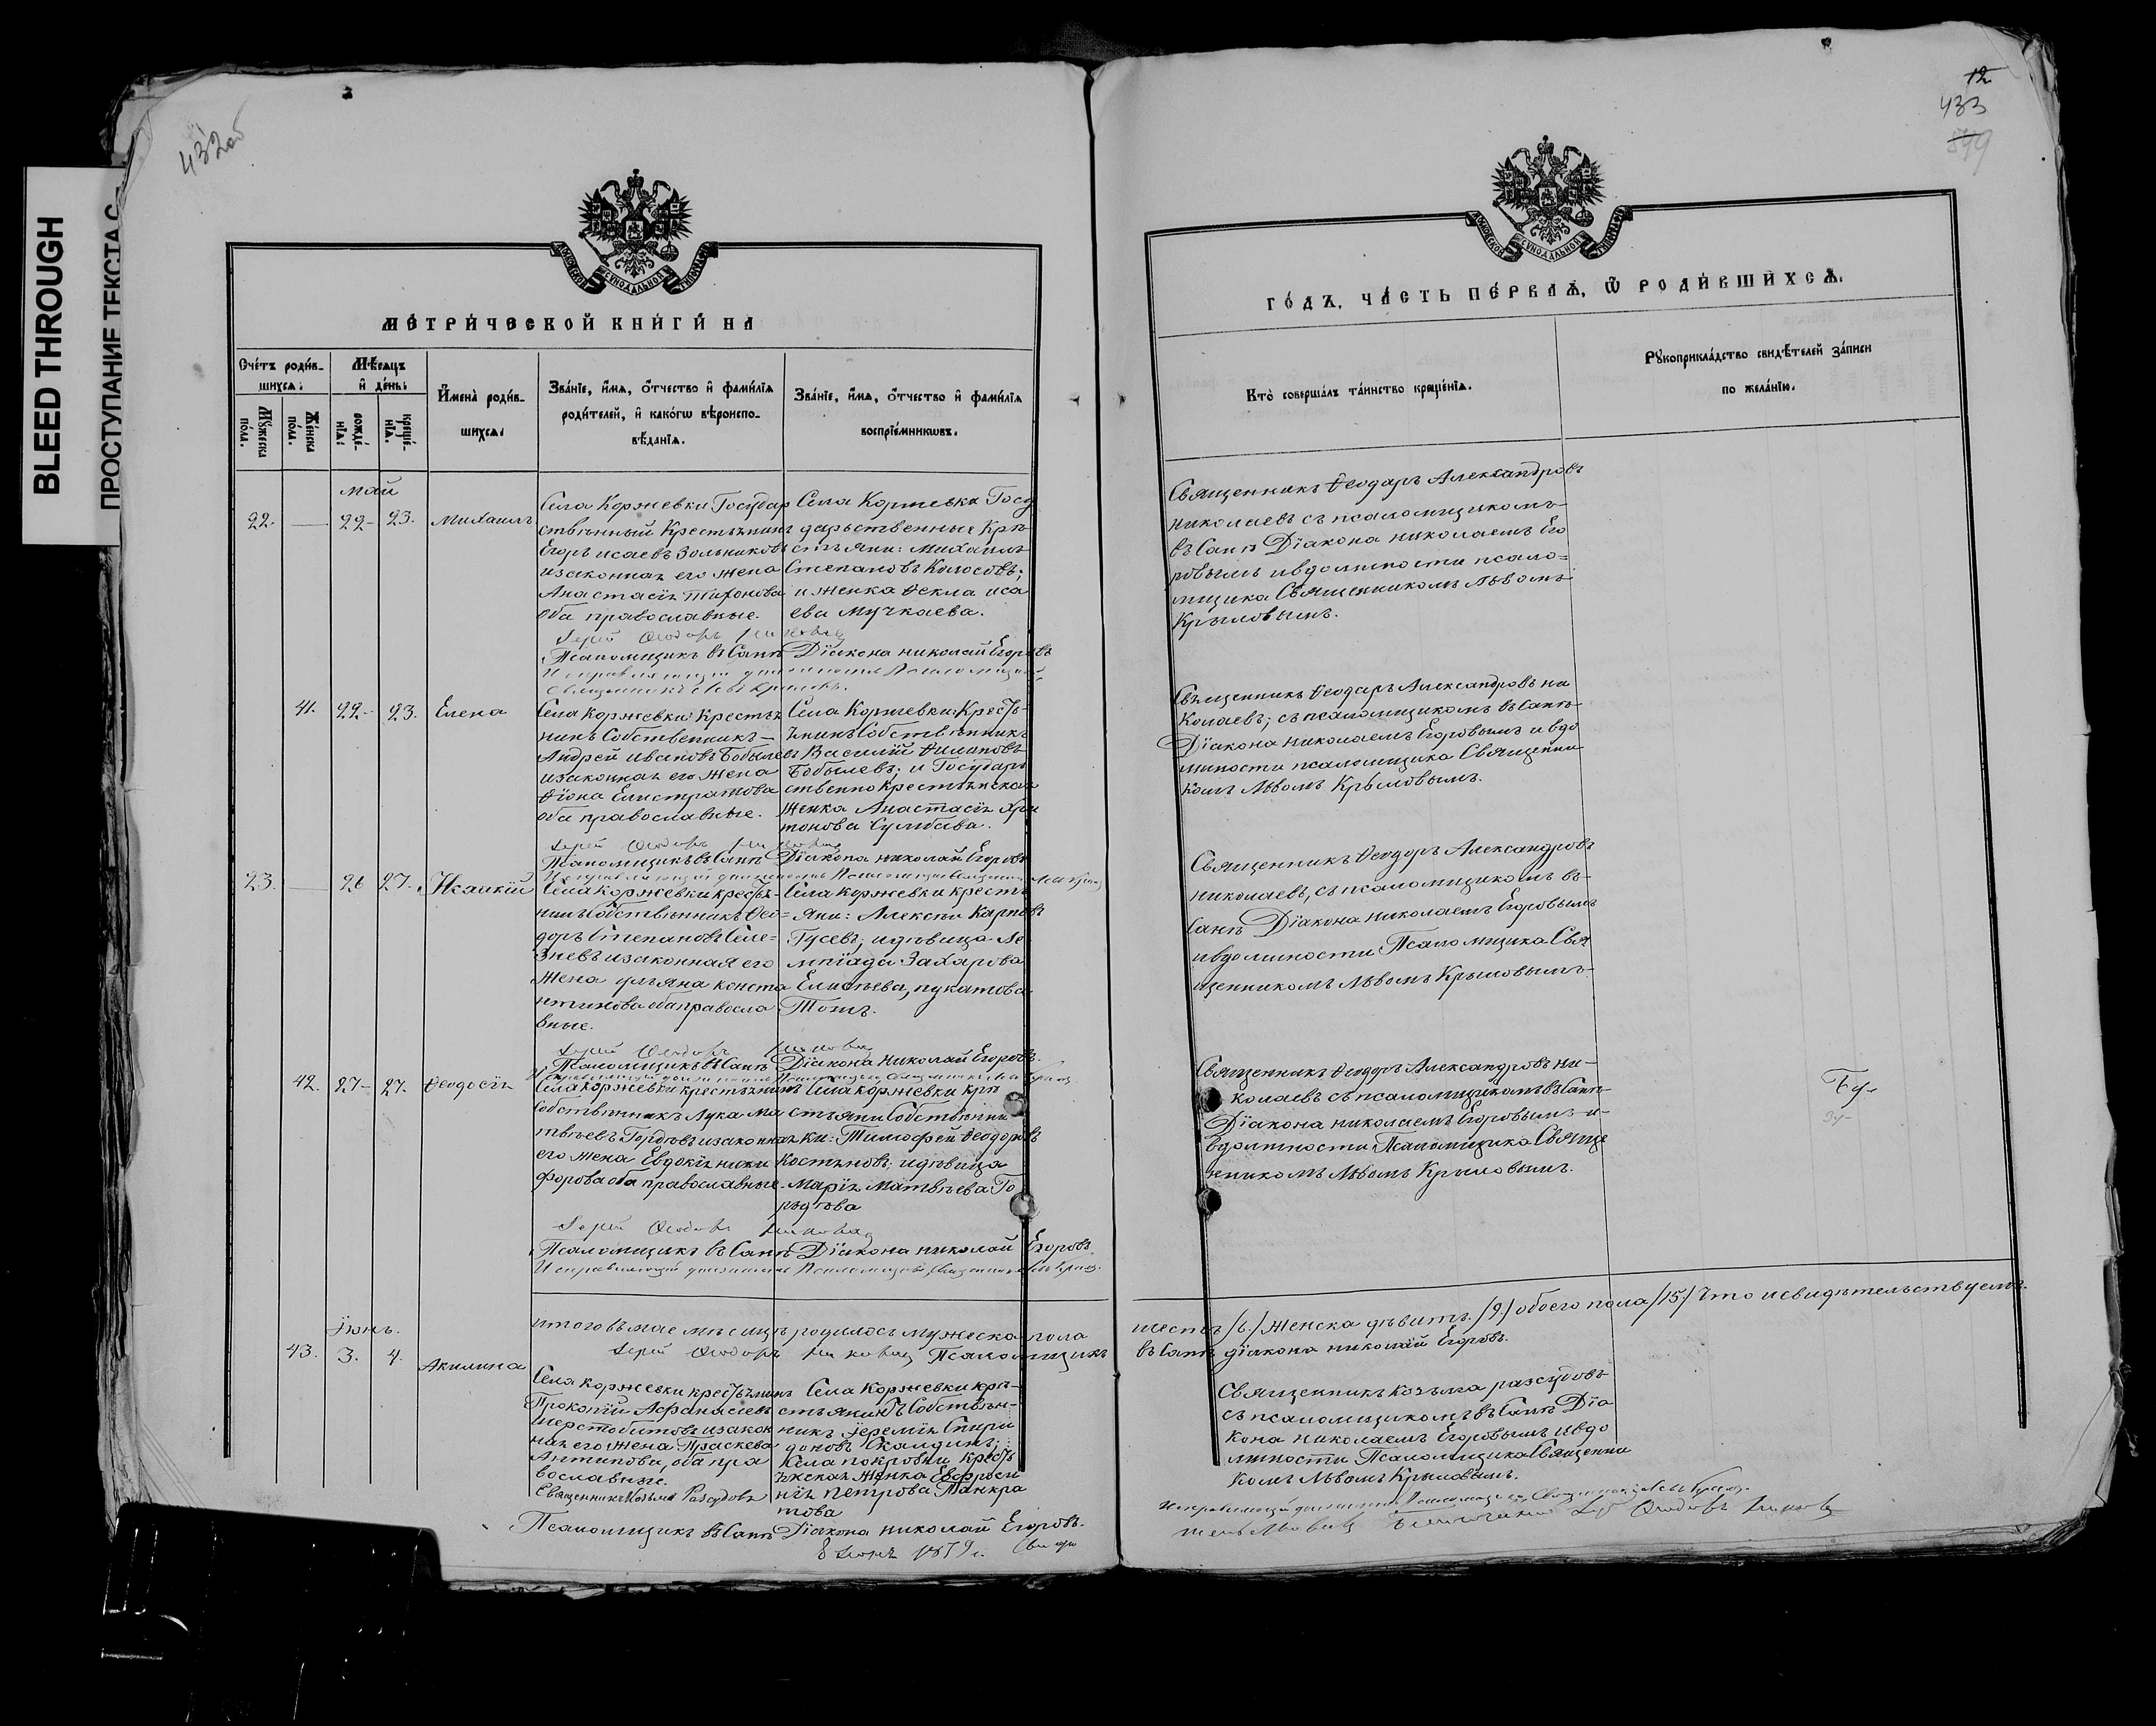 BLEED THROUGH
ПРОСТУПАНИЕ ТЕКСТА С
432об
МОСКОВСКОЙ СѴНОДАЛЬНОЙ ТИПОГРАФІИ
МЕТРИЧЕСКОЙ КНИГИ НА
Счетъ родив-
шихся:
Мѣсяцъ
и день:
Имена родив-
шихся:
Званіе, имя, отчество и фамилія
родителей, и какогѡ вѣроиспо-
вѣданія.
Званіе, имя, отчество и фамилія
воспріемникѡвъ.
Мужеска
пола.
Женска
пола.
рожде-
нія:
креще-
нія.
май
22. — 22- 23. Михаилъ
Села Коржевки Государ
ственный Крестьянинъ
Егоръ исаевъ Зольниковъ
изаконная его жена
Анастасія Тихонова
оба православные.
Села Коржевки Госу
дарственные Кре
стьяни: Михаилъ
Степановъ Колосовъ;
и женка Ѳекла иса
ева мучкаева.
Іерей Ѳеодоръ Николаев
Псаломщикъ въ Санѣ Діакона николай Егоровъ
Священникъ Левъ Крыловъ.
41. 22.- 23. Елена
Села Коржевки Крестья
нинъ Собственникъ—
Андрей ивановъ Бобылевъ
изаконная его жена
Ѳіона Елистратова
оба православные.
Села Коржевки: Кресть-
янинъ Собственникъ
Василій Филиповъ
Бобылевъ; и Государ
ственно крестьянская
женка Анастасія Хри
тонова Сулдбава.
Іерей Ѳеодоръ Николаев
Псаломщикъ въ Санѣ Діакона николай Егоровъ
23. — 26 27. Исаакій
Села Коржевки кресть-
нинъ Собственникъ Ѳео=
доръ Степановъ Селе=
зневъ изаконная его
жена ульяна конста
нтинова оба правосла
вные.
Села Коржевки кресть
яни: Алексѣи Карповъ
Гусевъ; идѣвица Ло-
мпіада Захарова
Тожъ.
Іерей Ѳеодоръ Николаев
Псаломщикъ въ Санѣ Діакона николай Егоровъ.
42. 27- 27. Ѳеодосія
Села Коржевки крестьянинъ
Собственникъ Лука Ма
твѣевъ Гордѣевъ изаконная
его жена Евдокія ники
форова оба православные.
Села Коржевки кре
стьяни Собственни
ки: Тимоѳей Ѳеодоровъ
Костяновъ; идѣвица
Марія Матвѣева Го
рдѣева
Іерей Ѳеодоръ Николаев
Псаломщикъ въ Санѣ Діакона николай Егоровъ
Исправляющій должность Псаломщика Священникъ Левъ Крыл.
итого въ мае месяцѣ родилось мужеска пола
Іерей Ѳеодоръ Николаев Псаломщикъ
Іюнь.
43. 3. 4. Акилина
Села Коржевки крестьянинъ
Прокопій Аѳанасіевъ
Шерстобитовъ изакон
ная его жена Праскева
Антипова, оба пра
вославные.
Села Коржевки кре-
стьянинъ Собствен-
никъ Іеремія Спири
доновъ Скалдинъ;
Села покровки Кресть
янская женка Евфроси
нія петрова Панкра
това
Священникъ Козьма Разсудовъ
Псаломщикъ въ Санѣ Діакона николай Егоровъ.
8 Іюня 1879 г. Свидѣ
12
433
599
МОСКОВСКОЙ СѴНОДАЛЬНОЙ ТИПОГРАФІИ
ГОДЪ, ЧАСТЬ ПЕРВАЯ, Ѿ РОДИВШИХСЯ.
Кто совершалъ таинство крещенія.
Рукоприкладство свидѣтелей записи
по желанію.
Священникъ Ѳеодоръ Александровъ
николаевъ съ псаломщикомъ
въ Санѣ Діакона николаемъ Его
ровымъ ивдолжности псало=
мщика Священникомъ Львомъ
Крыловымъ.
Священникъ Ѳеодоръ Александровъ ни
колаевъ; съ псаломщикомъ въ Санѣ
Діакона николаемъ Егоровымъ и вдо
лжности псаломщика Священни
комъ Львомъ Крыловымъ.
Священникъ Ѳеодоръ Александровъ
николаевъ, съ псаломщикомъ въ-
Санѣ Діакона николаемъ Егоровымъ
ивдолжности Псаломщика Свя
щенникомъ Львомъ Крыловымъ-
Священникъ Ѳеодоръ Александровъ ни-
колаевъ съ псаломщикомъ въ Санѣ-
Діакона николаемъ Егоровымъ-и-
вдолжности Псаломщика Свяще
нникомъ Львомъ Крыловымъ.
шесть /6./ женска девять. /9./ обоего пола /15./ Что и свидѣтельствуемъ.
въ Санѣ діакона николай Егоровъ.
Священникъ козьма разсудовъ
съ псаломщикомъ въ Санѣ Діа
кона николаемъ Егоровымъ ивдо
лжности Псаломщика Священни
комъ Львомъ Крыловымъ.
Исправляющій должность Псаломщика Священникъ Левъ Крыл.